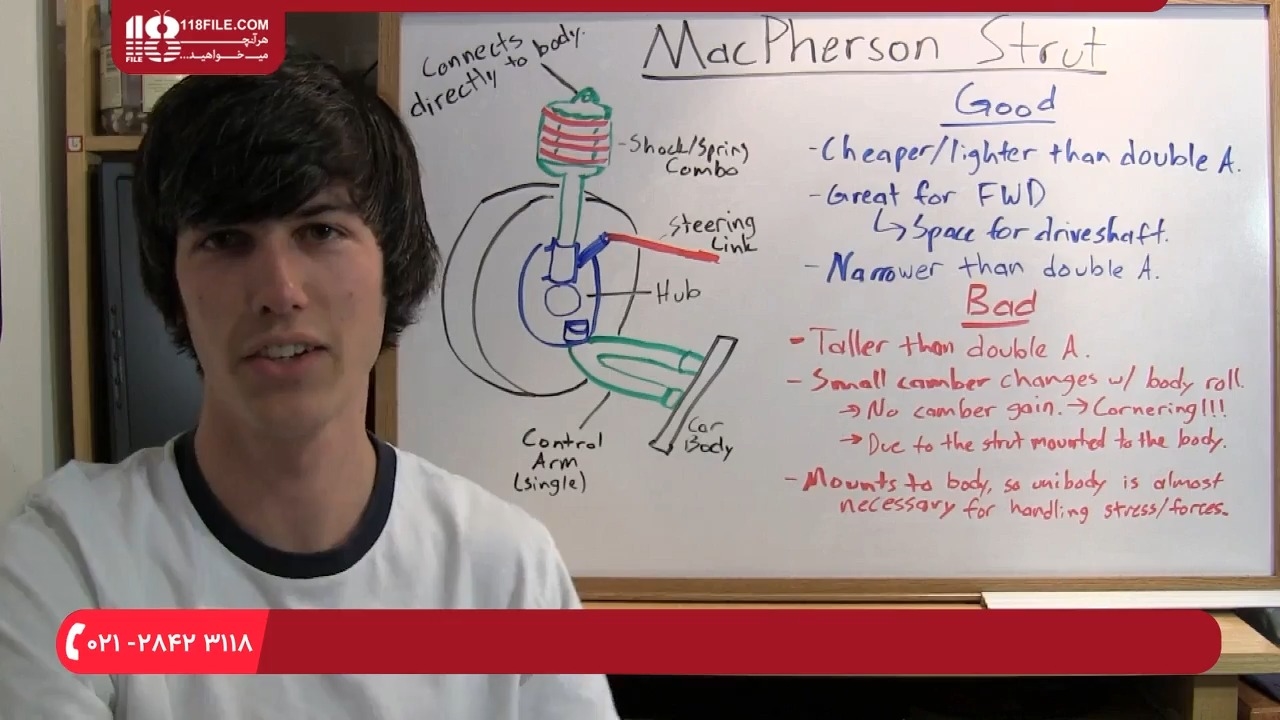 118FILE.COM
هرآنچه
میـخواهید...
118
FILE
MacPherson Strut
Connects
directly to body.
-Shock/Spring
Combo
Steering
Link
Hub
Control
Arm
(single)
Car
Body
Good
-Cheaper/lighter than double A.
-Great for FWD
↳ Space for driveshaft.
-Narrower than double A.
Bad
-Taller than double A.
-Small camber changes w/ body roll.
→ No camber gain. → Cornering!!!
→ Due to the strut mounted to the body.
-Mounts to body, so unibody is almost
necessary for handling stress/forces.
۰۲۱-۲۸۴۲ ۳۱۱۸